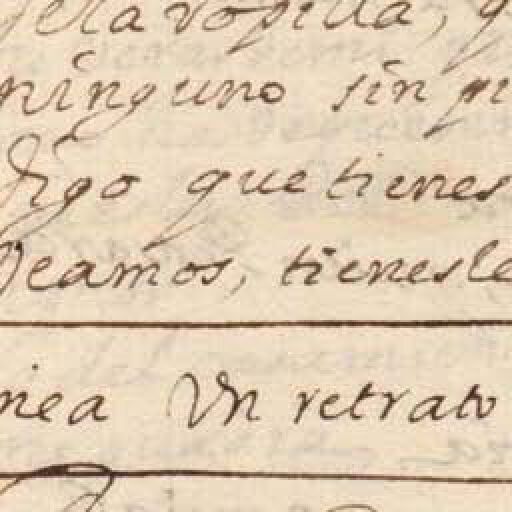 ropilla, q
ninguno sin pi
digo que tienes
Veamos, tienesle
nea Vn retrato